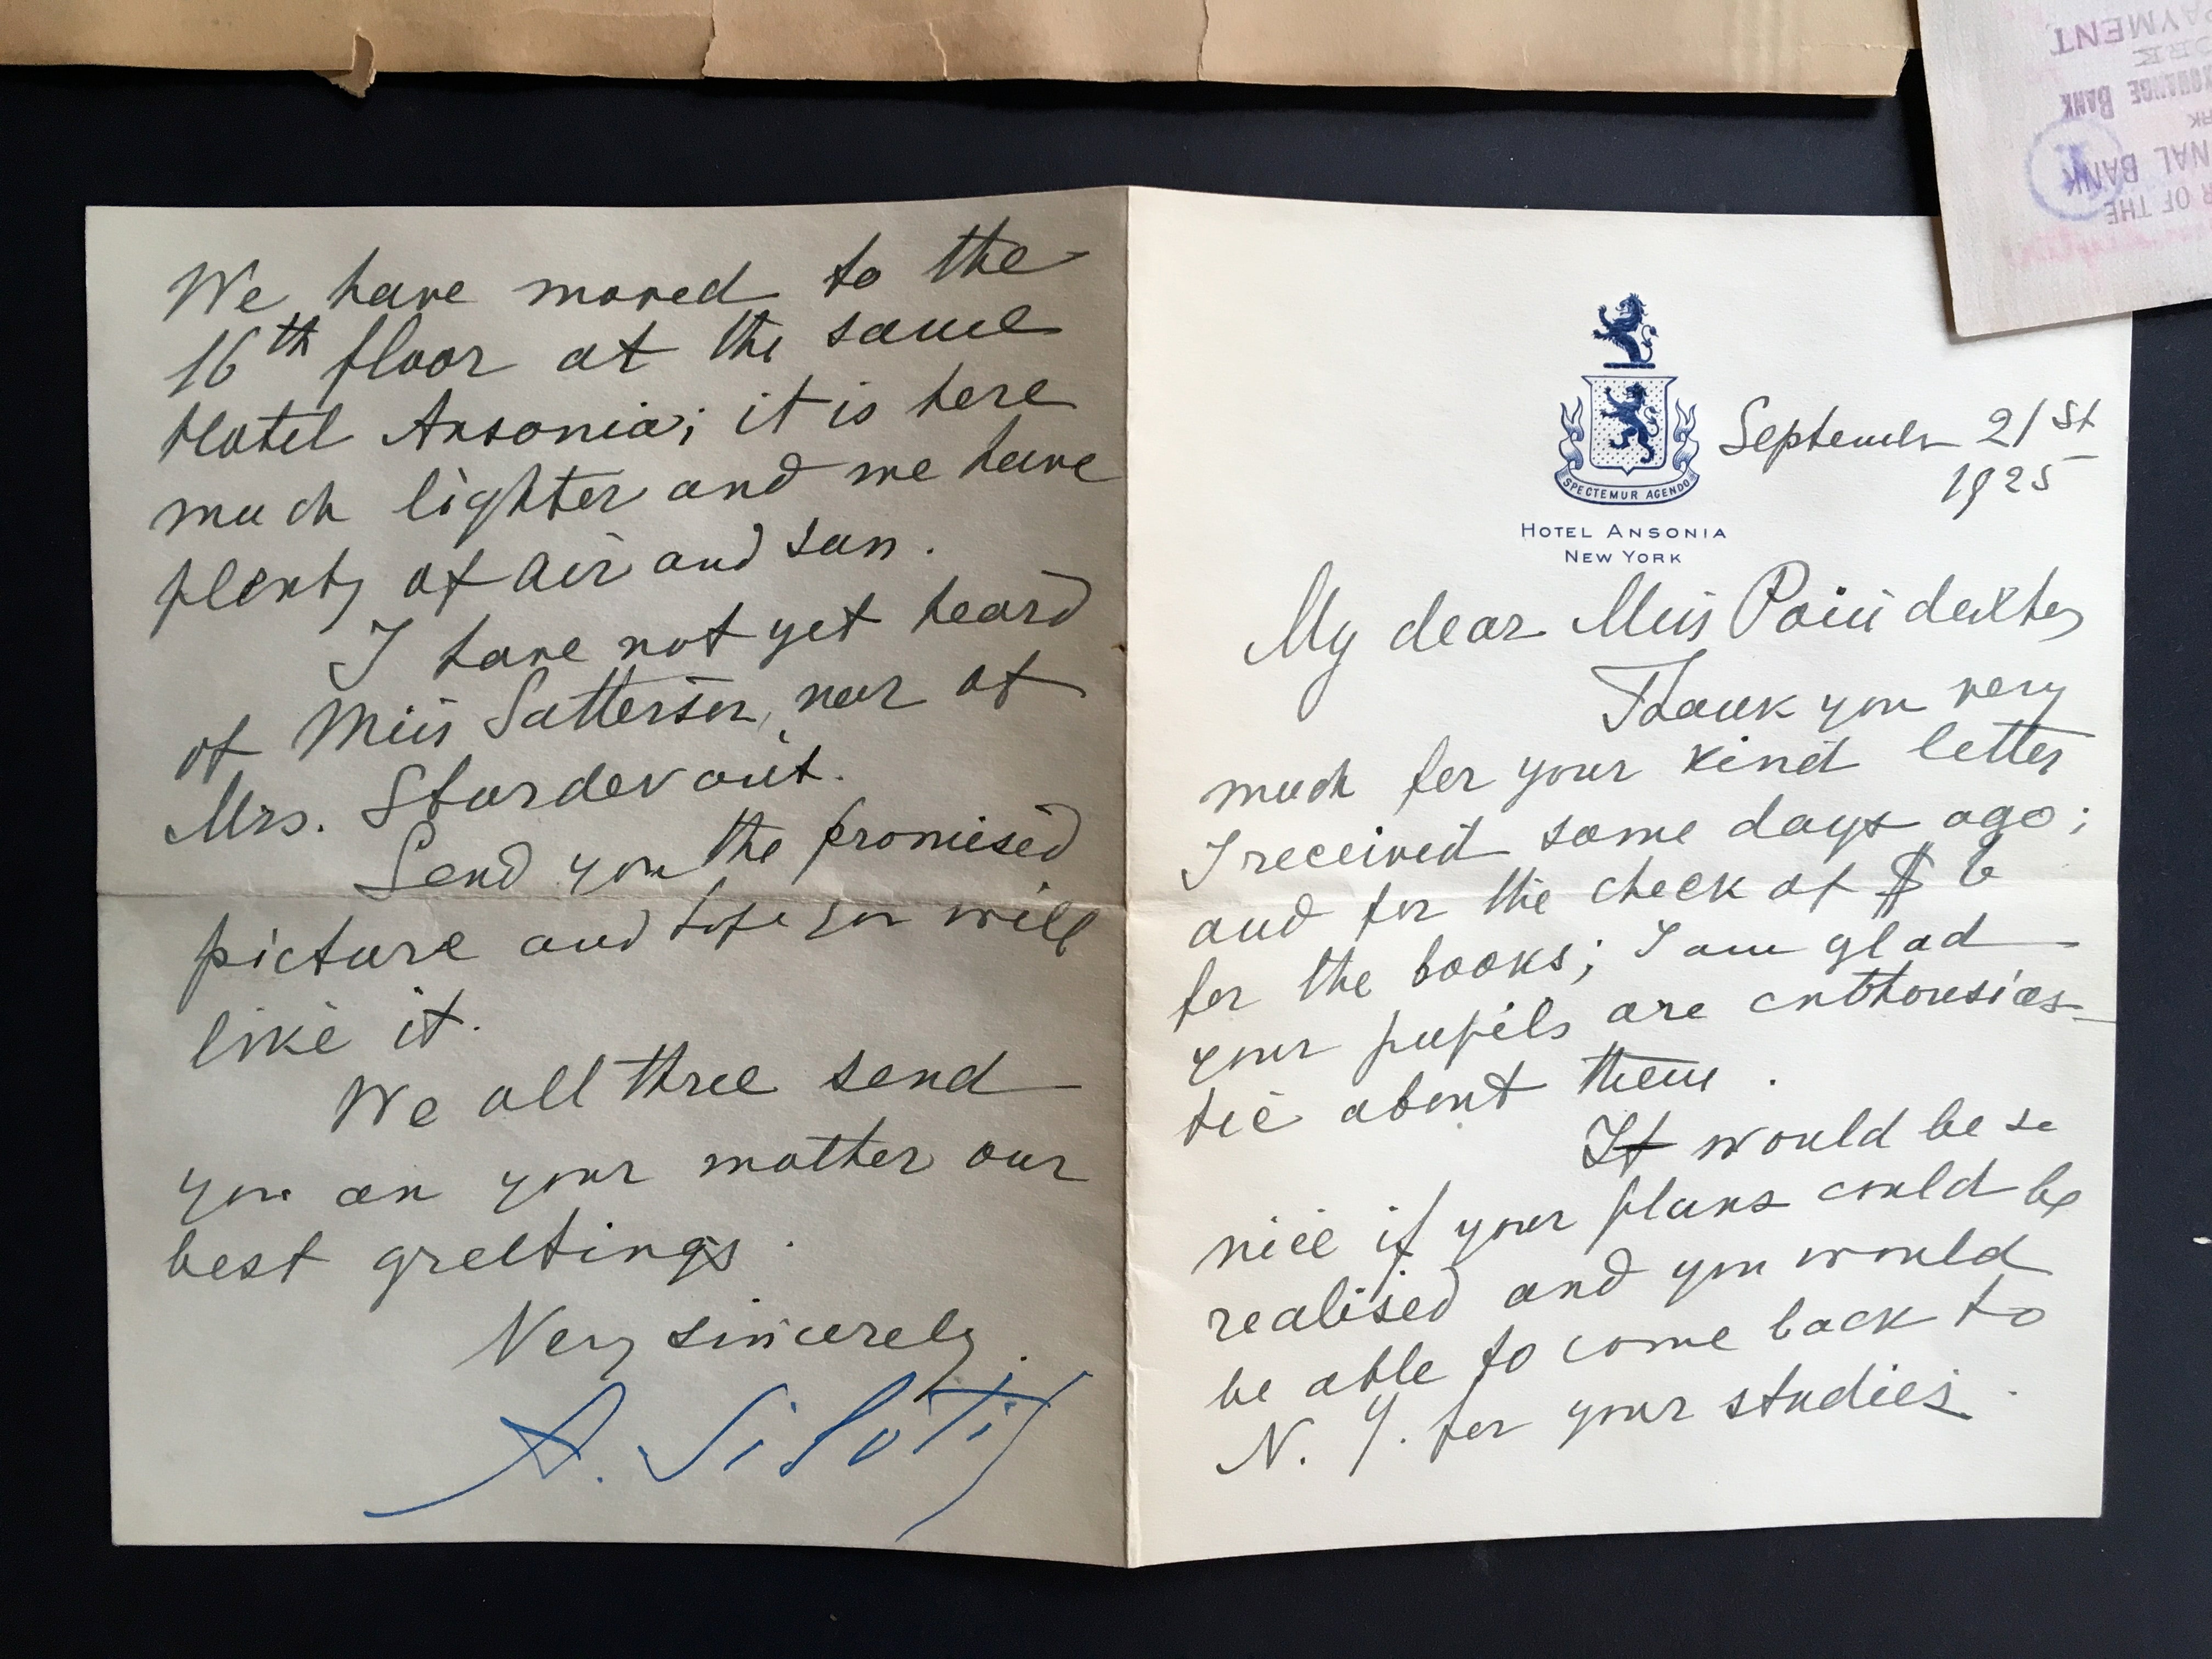 SPECTEMUR AGENDO
HOTEL ANSONIA
NEW YORK
September 21st
1925
My dear Miss Poindexter
Thank you very
much for your kind letter
I received some days ago;
and for the check of $ 6
for the books; I am glad
your pupils are entthousias-
tic about them.
It would be so
nice if your plans could be
realised and you would
be able to come back to
N. Y. for your studies.
We have moved to the
16th floor at the same
Hotel Ansonia; it is here
much lighter and we have
plenty of air and sun.
I have not yet heard
of Miss Satterson, nor of
Mrs. Sturdevant.
Send you the promised
picture and hope you will
like it.
We all three send
you an your mother our
best greetings.
Very sincerely
A. Siloti
PAYMENT
BANK
NAL BANK
R OF THE